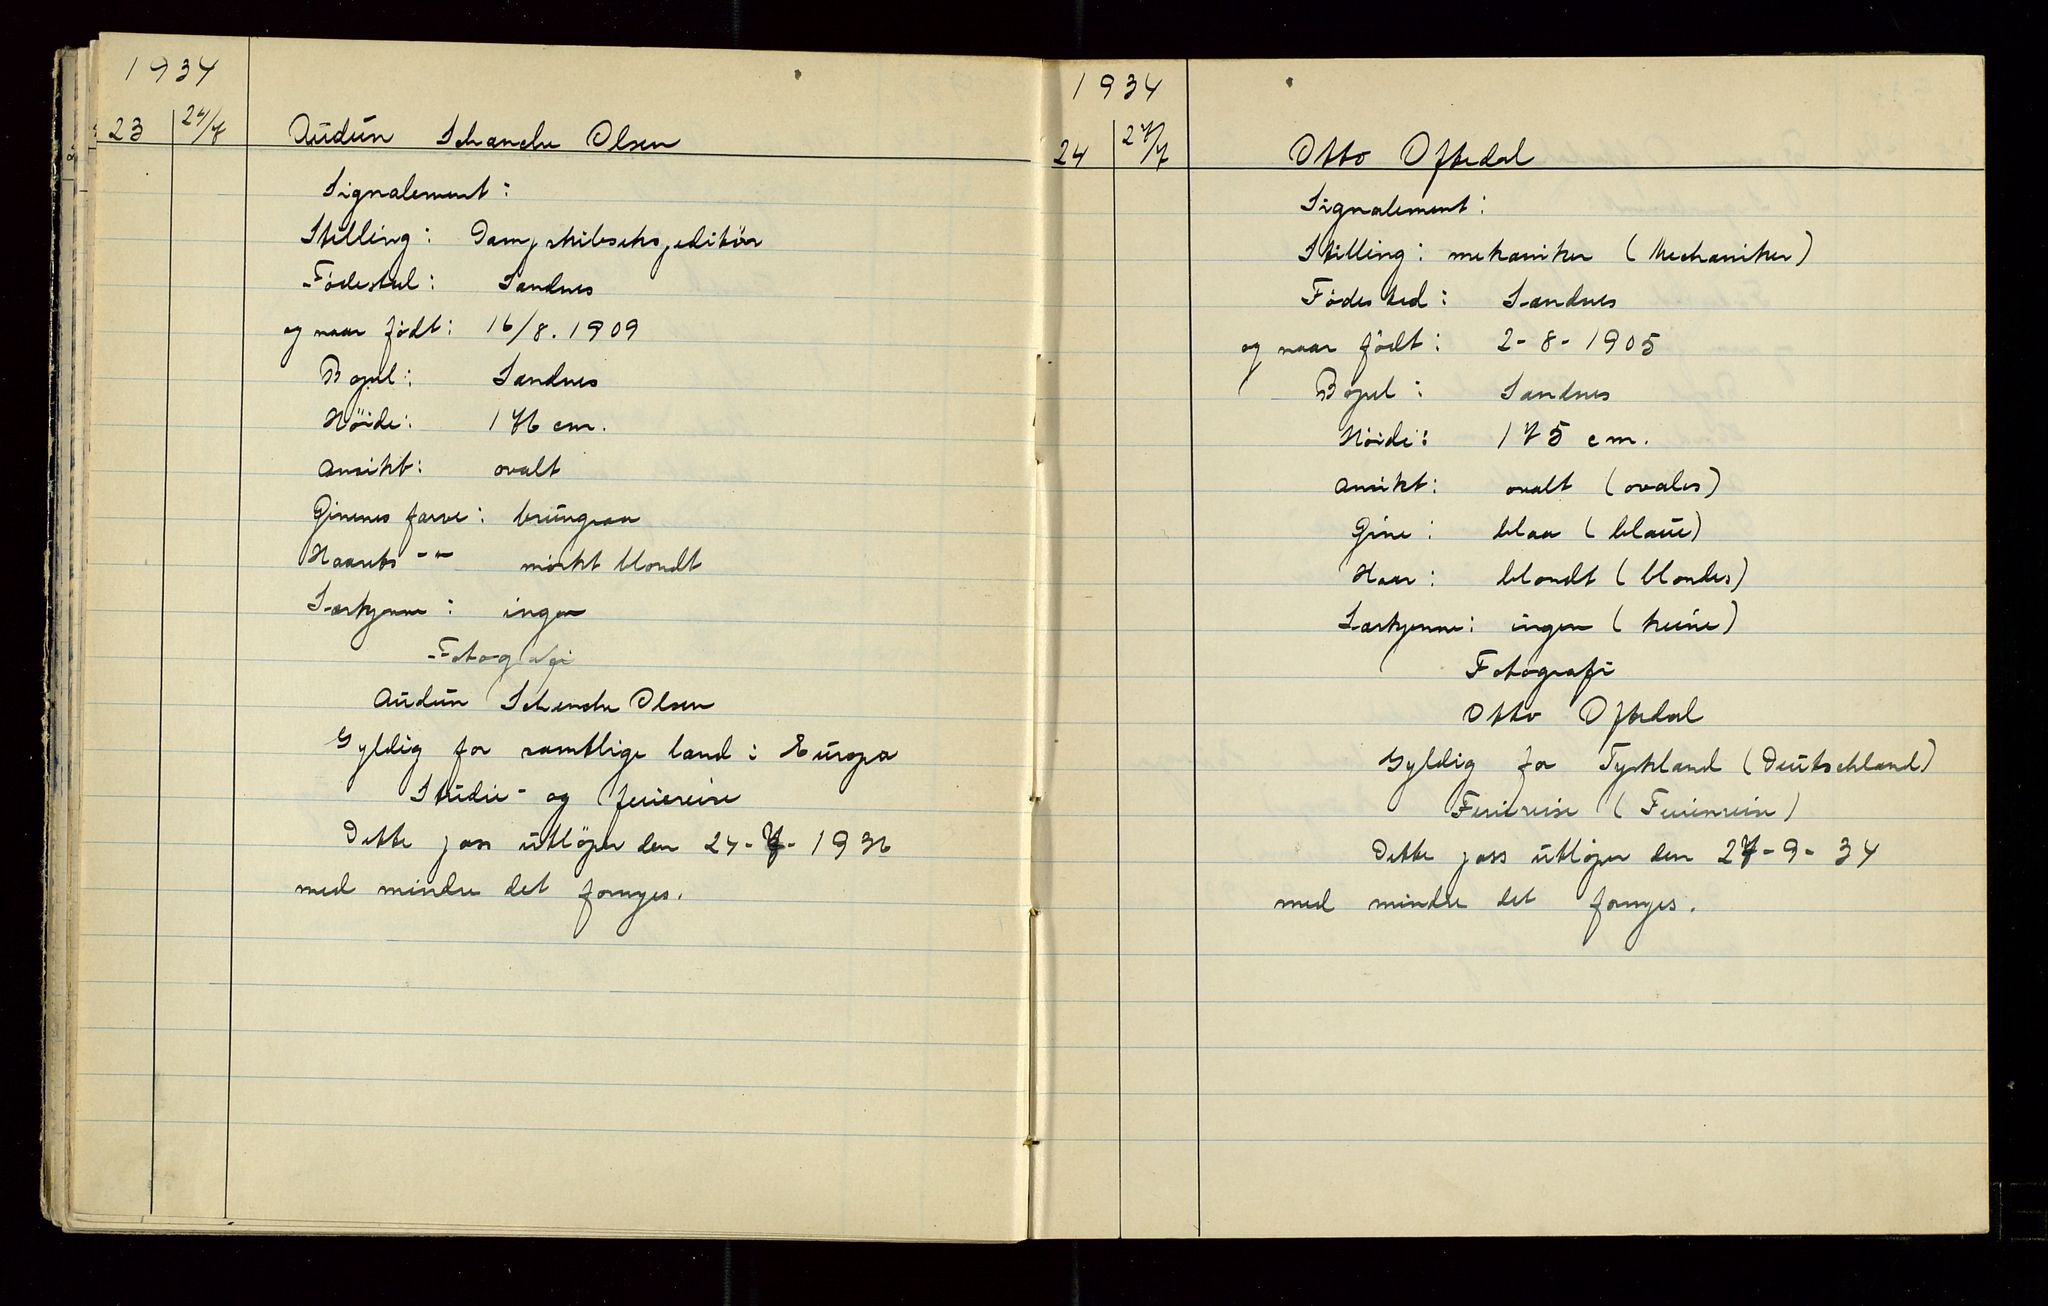 1934
23 24/7 Audun Schanche Olsen
Signalement:
Stilling: Dampskibsekspeditör
Födested: Sandnes
og naar født: 16/8. 1909
Bopel: Sandnes
Höide: 176 cm.
Ansikt: ovalt
Öinenes farve: brungraa
Haarets -"- mörkt blondt
Særkjenne: ingen
Fotografi
Audun Schanche Olsen
Gyldig for samtlige land i Europa
Studie- og feriereise
Dette pass utlöper den 24-7-1936
med mindre det fornyes.
1934
24 27/7 Otto Oftedal
Signalement:
Stilling: mekaniker (Mechaniker)
Födested: Sandnes
og naar födt: 2-8-1905
Bopel: Sandnes
Höide: 175 cm.
Ansikt: ovalt (ovales)
Öine: blaa (blaue)
Haar: blondt (blondes)
Særkjenne: ingen (keine)
Fotografi
Otto Oftedal
Gyldig for Tyskland (Deutschland)
Feriereise (Ferienreise)
Dette pass utlöper den 27-9-34
med mindre det fornyes.